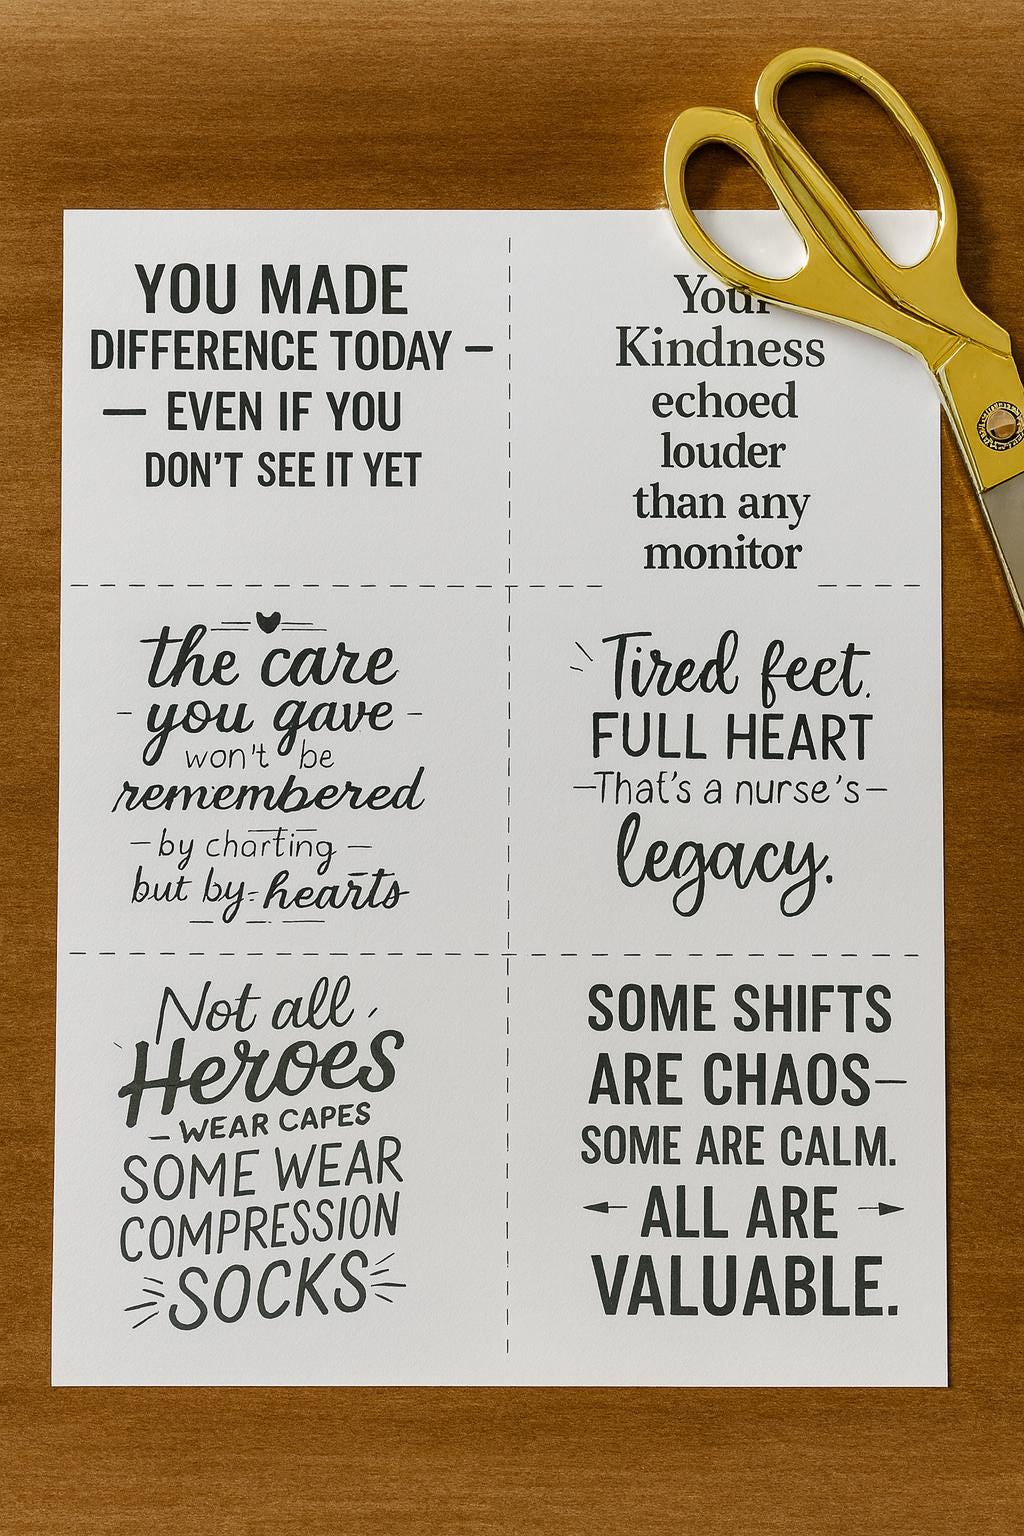 YOU MADE
DIFFERENCE TODAY —
— EVEN IF YOU
DON'T SEE IT YET
Your
Kindness
echoed
louder
than any
monitor
the care
- you gave -
won't be
remembered
— by charting —
but by- hearts
Tired feet.
FULL HEART
—That's a nurse's—
legacy.
Not all
Heroes
— WEAR CAPES
SOME WEAR
COMPRESSION
SOCKS
SOME SHIFTS
ARE CHAOS—
SOME ARE CALM.
ALL ARE
VALUABLE.